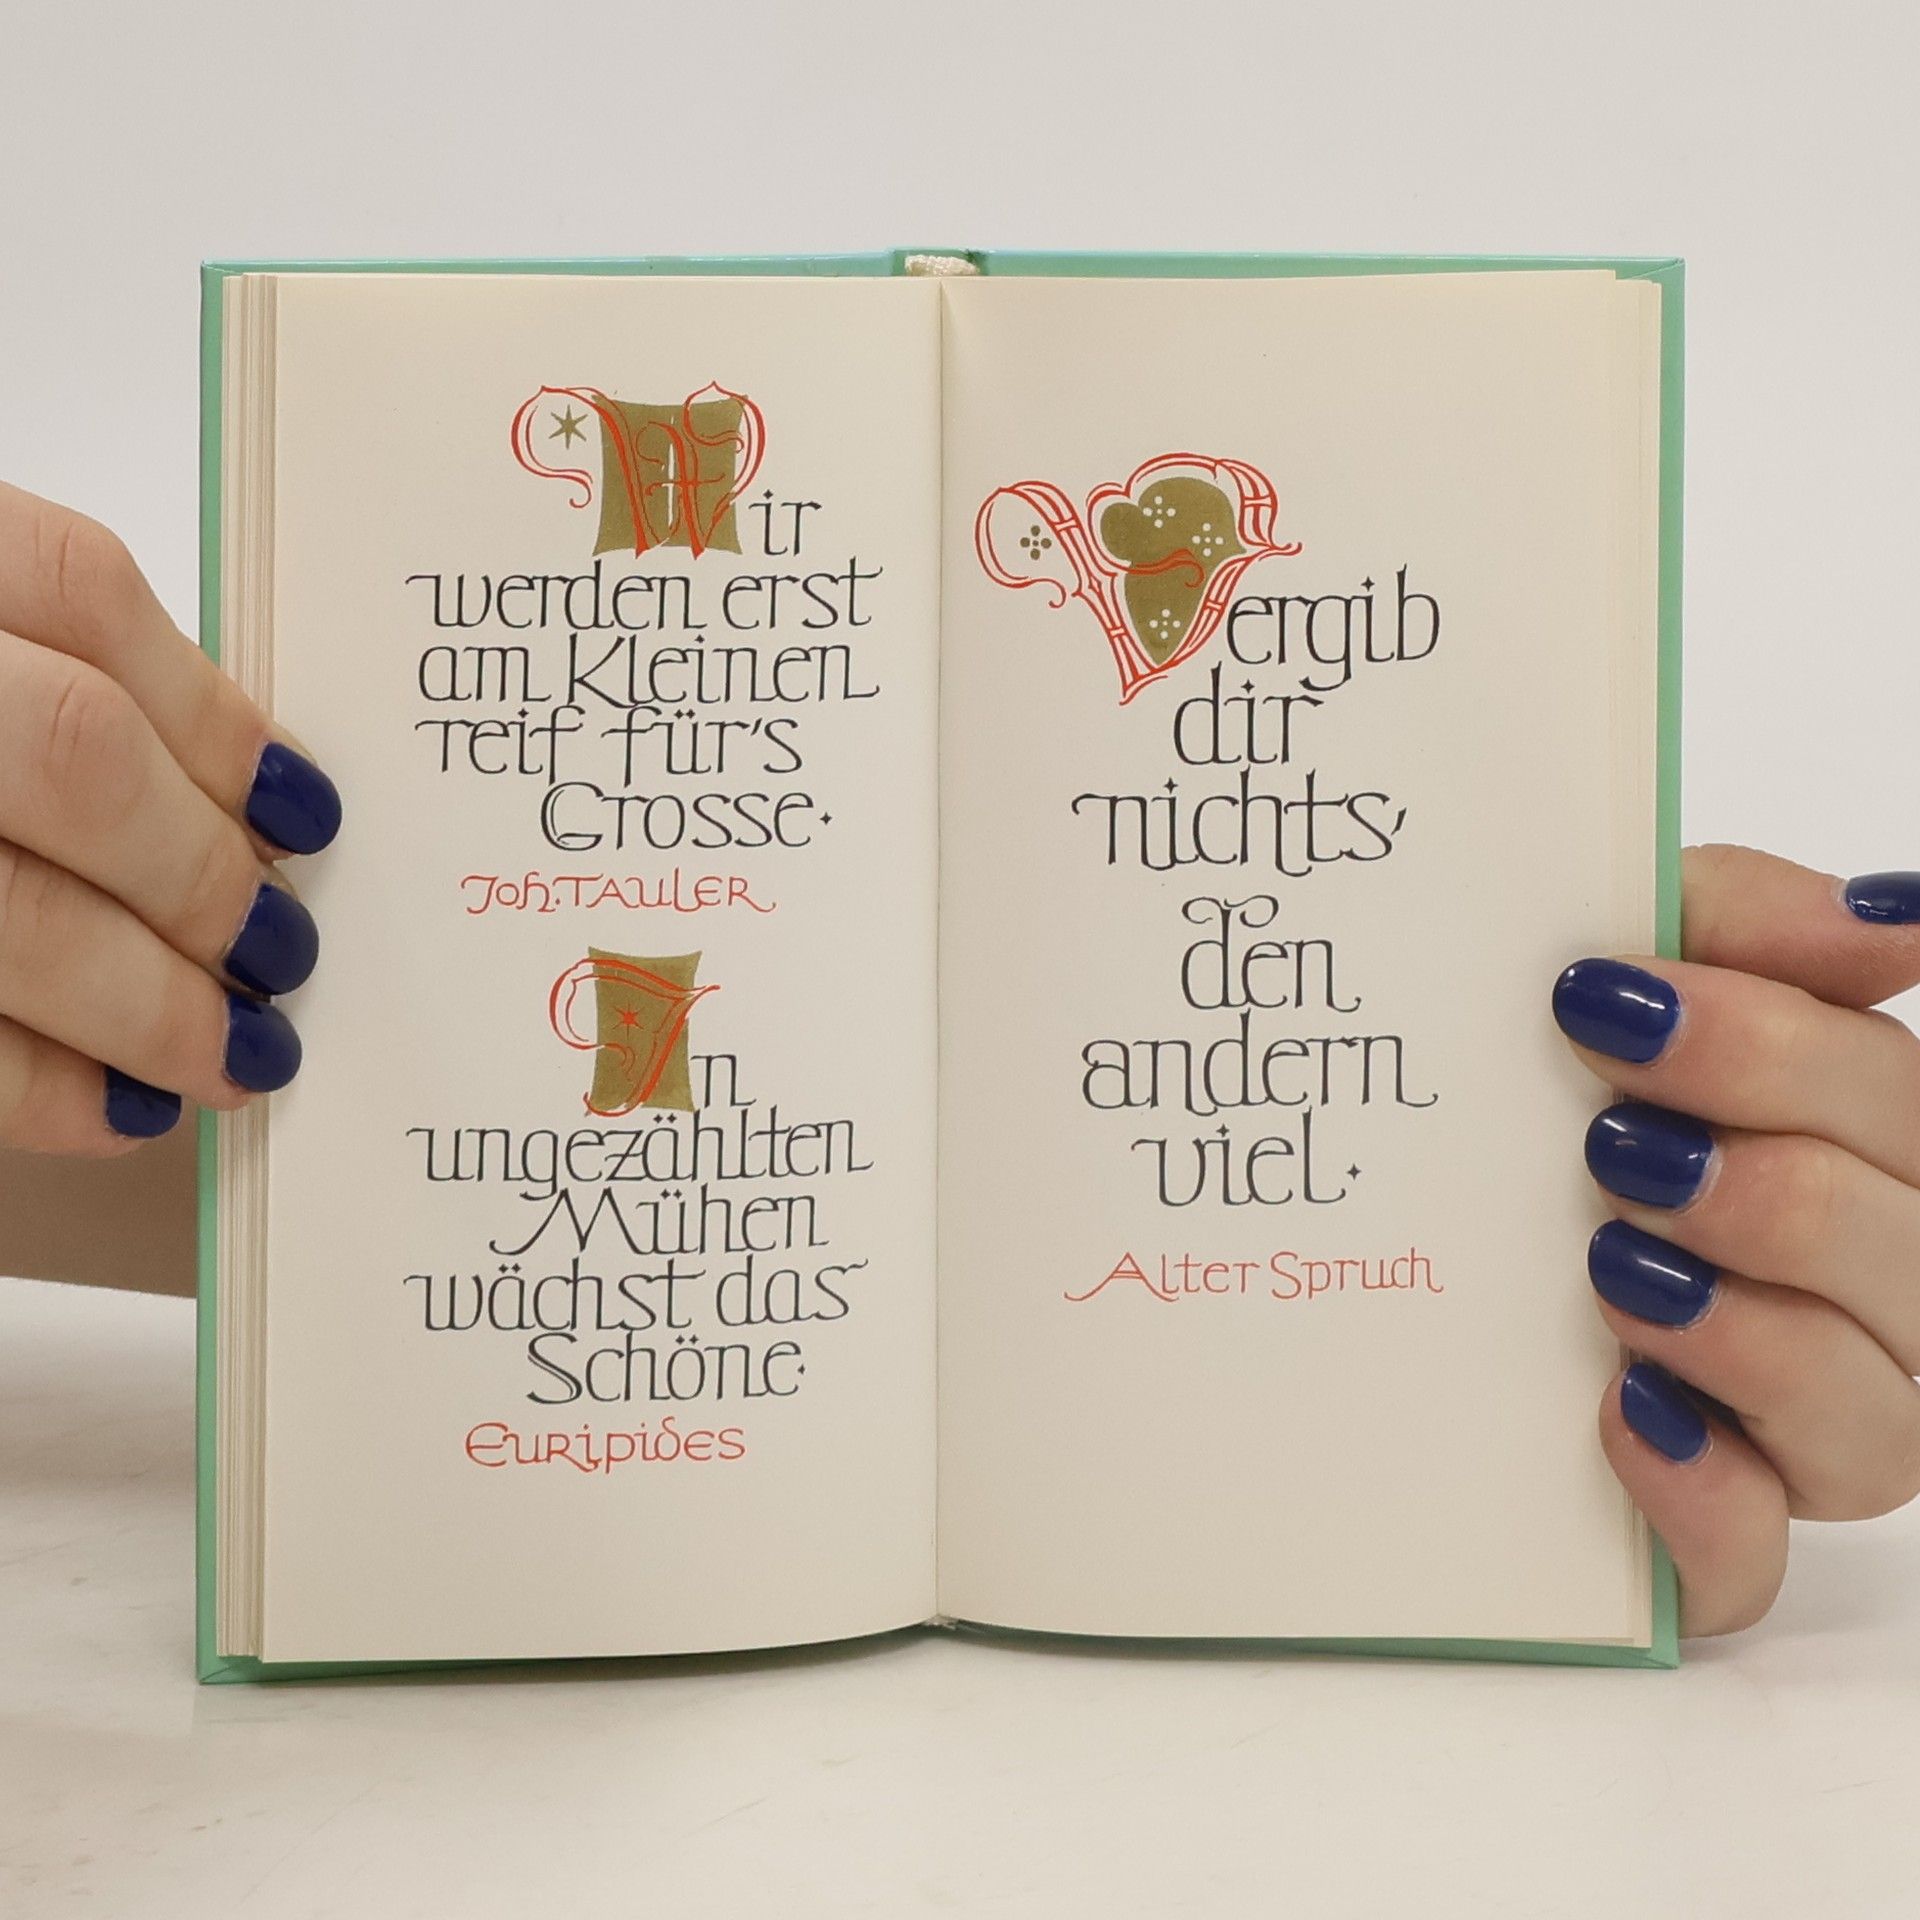 Wir
werden erst
am Kleinen
reif für's
Grosse.
Joh. TAULER
In
ungezählten
Mühen
wächst das
Schöne.
Euripides
Vergib
dir
nichts,
den
andern
viel.
Alter Spruch